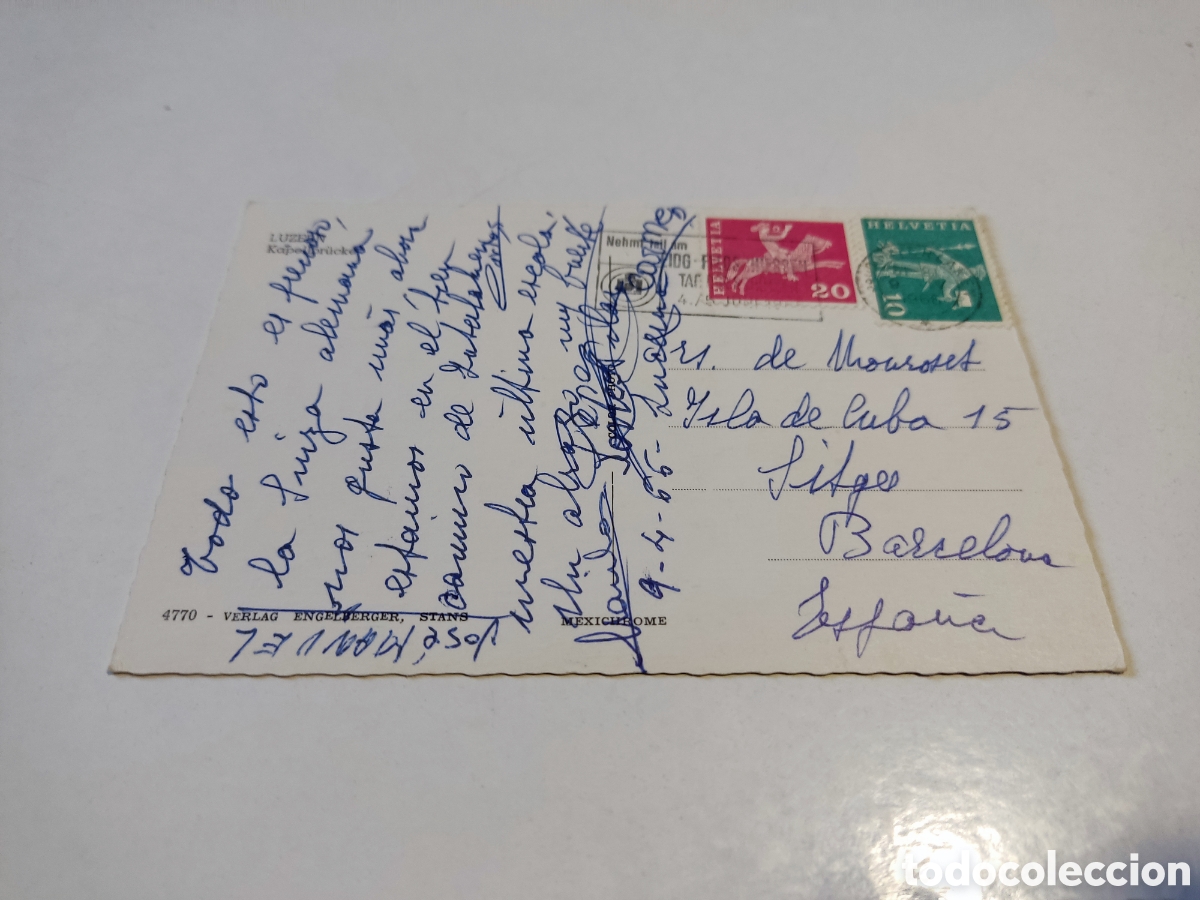 LUZERN
Kapellbrücke
Todo esto es precioso,
la Suiza alemana
nos gusta más ahora
estamos en el tren
camino de Interlaken
nuestra última escala
Un abrazo muy fuerte
JOSÉ MANUEL
9-4-65-
4770 - VERLAG ENGELBERGER, STANS
MEXICHROME
Nehmt teil am
HELVETIA
20
HELVETIA
10
rs. de Monroset
Isla de Cuba 15
Sitges
Barcelona
España
todocoleccion